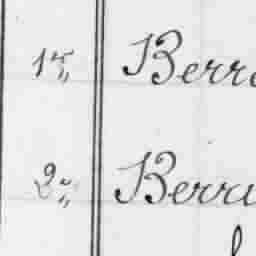 1° Berr
2° Berr